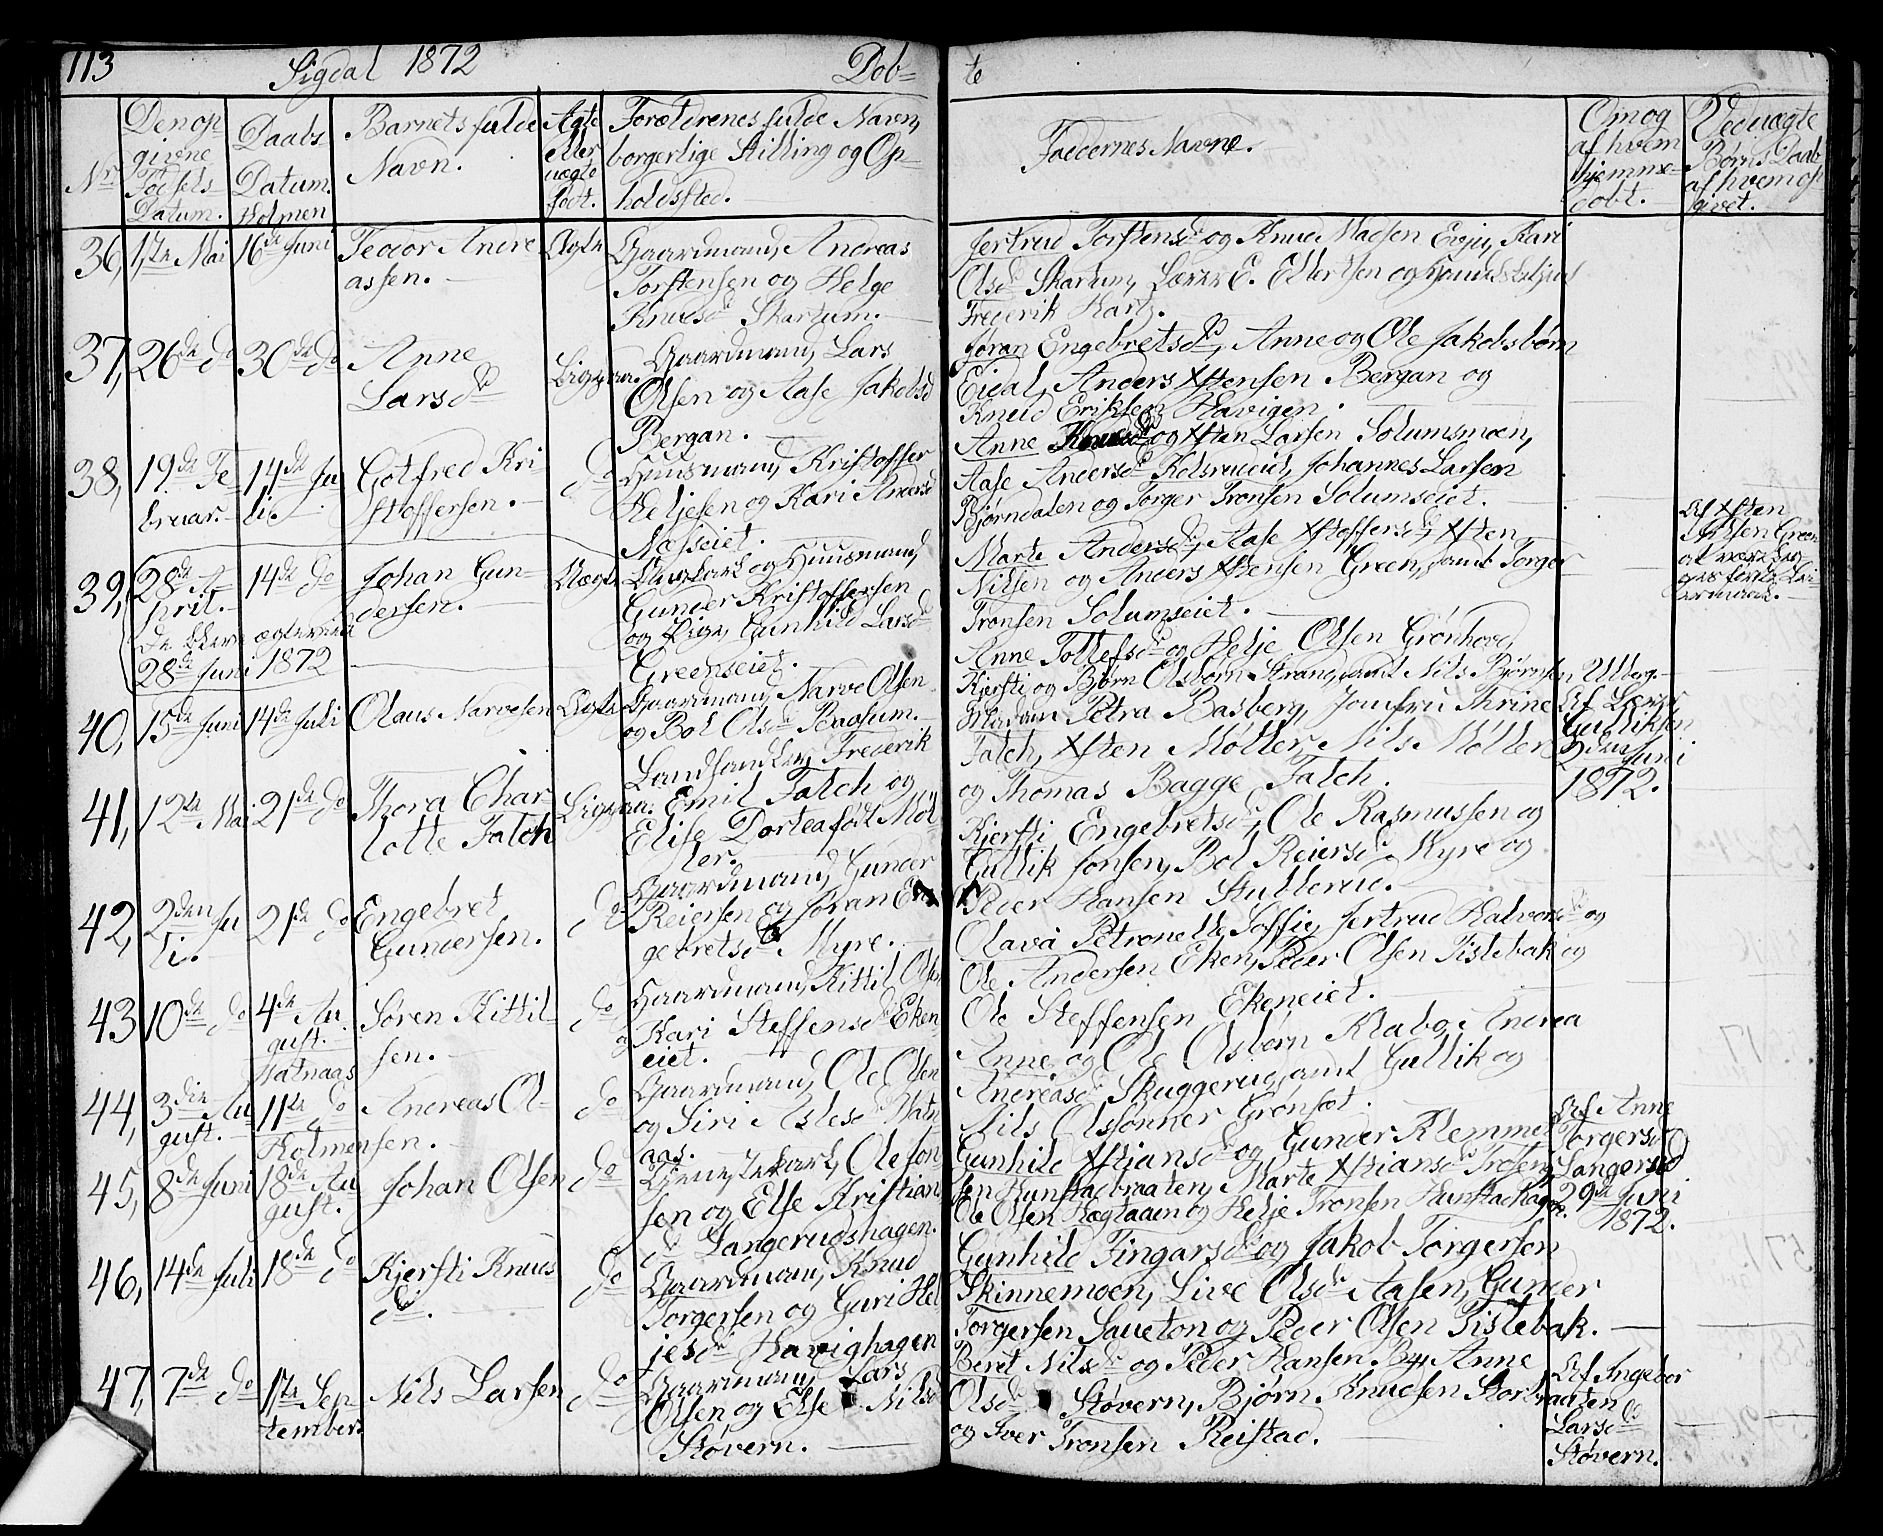 113 Sigdal 1872 Dob= te
Nr.
Den op
givne
Fødsels
Datum.
Daabs-
Datum.
Holmen
Barnets fulde
Navn.
Ægte
eller
uægte
født.
Forældrenes fulde Navn,
borgerlige Stilling og Op-
holdssted.
Faddernes Navne.
Om og
af hvem
hjemme-
døbt.
Ved uægte
Børns Daab
af hvem op
givet.
36, 1ste Mai 16de Juni Teodor Andre
assen.
Ægte
Gaardmand, Andreas
Torstensen og Helge
Knudsd. Skartum.
Jertrud Torstensd. og Knud Madsen Evju, Kari
Olsd. Skartum, Lærer E. Ellertsen og
Frederik Hartz.
37, 26de do 30de do Anne
Larsd.
Ligesaa.
Gaardmand, Lars
Olsen og Aase Jakobsd
Bergan.
Jøran Engebretsd., Anne og Ole Jakobsbørn
Eidal, Anders Xstensen Bergan og
Knud Eriksen Havigen.
38, 19de Fe
bruar.
14de Ju
li.
Gotfred Kri
stoffersen.
do
Huusmand, Kristoffer
Heljesen og Kari Andersd
Næsseiet.
Anne Knudsd. og Xsten Larsen Solumsmoen,
Aase Andersd. Kolsrudeiet, Johannes Larsen
Bjørndalen og Torger Tronsen Solumseiet.
39, 28de A
pril.
14de do Johan Gun-
dersen.
Uægte
Ungkarl og Huusmand,
Gunder Kristoffersen
og Pige, Gunhild Larsd.
Greenseiet.
De blev ægteviede
28de Juni 1872
Marte Andersd., Aase Xstoffersd., Xsten
Nilsen og Anders Xstensen Green, samt Torger
Tronsen Solumseiet.
Af Xsten
Nilsen Green
40, 15de Juni 14de Juli Olaus Narvesen Ægte
Gaardmand, Narve Olsen
og Bol Olsd. Baasum.
Anne Tollefsd. og Helje Olsen Grønhovd,
Kjersti og Bjørn Olsbørn Strand, samt Nils Bjørnsen Ulberg.
41, 12te Mai 21de do Thora Char
lotte Falch
Ligesaa.
Landhandler, Frederik
Emil Falch og
Elise Dortea født Møl-
ler.
Madam Petra Basberg, Jomfru Thrine
Falch, Xsten Møller, Nils Møller
og Thomas Bagge Falch.
Af Lærer
Gulliksen
2den Juni
1872.
42, 2den Ju
li.
21de do Engebret
Gundersen.
do
Gaardmand, Gunder
Reiersen og Jøran En
gebretsd. Myre.
Kjersti Engebretsd., Ole Rasmussen og
Gullik Jonsen, Bol Reiersd. Myre og
Peder Hansen Stullerud.
43 10de do 4de Au
gust.
Søren Kittil-
sen.
do
Gaardmand, Kittil Olsen
og Kari Steffensd. Eken
eiet.
Olava Petronelle Soffie, Jertrud Halvorsd. og
Ole Andersen Eken, Peder Olsen Tistebak og
Ole Steffensen Ekeneiet.
Hatnaas
44, 3die Au
gust.
11te do Andreas Ol-
sen.
do
Gaardmand, Ole Olsen
og Siri Aslesd. Hatn
aas.
Anne og Ole Olsbørn Klabo, Andrea
Andreasd. Skuggerud, samt Gullik og
Nils Olssønner Grønset.
Holmen
45, 8de Juni 18de Au
gust.
Johan Olsen do
Tjenestekarl, Ole Jon-
sen og Else Kristian
sd. Langerudshagen.
Gunhild Xstiansd. og Gunder Klemmet
sen Hunstadbraaten, Marte Xstiansd. Trosen,
Ole Olsen Hægtaaen og Helje Tronsen Hunstadhagen.
Af Anne
Torgersd.
Langerud
29de Juni
1872.
46, 14de Juli 18de do Kjersti Knuds
d.
do
Gaardmand, Knud
Torgersen og Guri Hel
jesd. Havighagen
Gunhild Fingarsd. og Jakob Torgersen
Skinnemoen, Live Olsd. Aasen, Gunder
Torgersen Saueton og Peder Olsen Tistebak.
47, 7de do 1ste Sep
tember
Nils Larsen do
Gaardmand, Lars
Olsen og Else Nilsd
Støvern.
Beret Nilsd. og Peder Hansen By, Anne
Olsd. Støvern, Bjørn Knudsen Storbraaten
og Iver Tronsen Reistad.
Af Ingebor
Larsd.
Støvern.